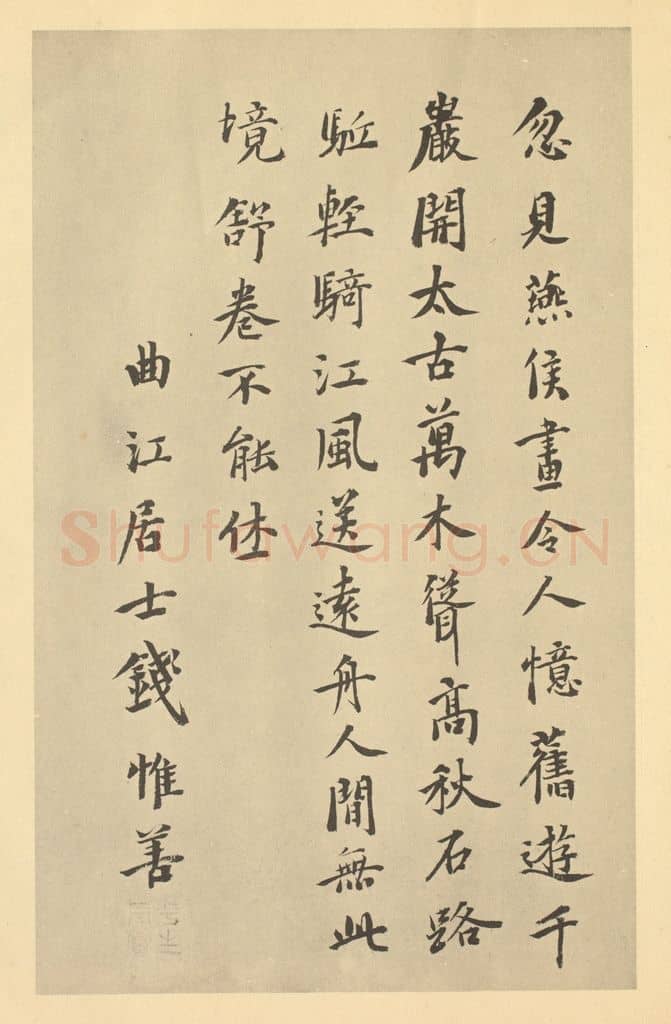 忽見燕侯畫令人憶舊遊千
巖開太古萬木聳高秋石路
駈輕騎江風送遠舟人間無此
境舒卷不能休
曲江居士錢惟善
Shufawang.CN